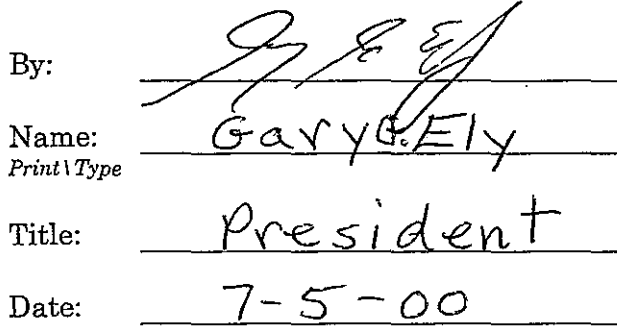 By:
Name: Gary G. Ely
Print\Type
Title: President
Date: 7-5-00